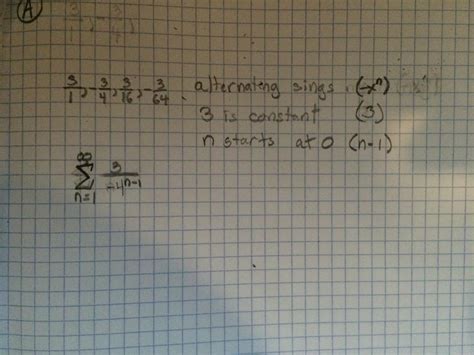 A
3/1, -3/4, 3/16, -3/64, alternateng sings. (-xⁿ)
3 is constant (3)
n starts at 0 (n-1)
∞
Σ 3/-4ⁿ⁻¹
n=1